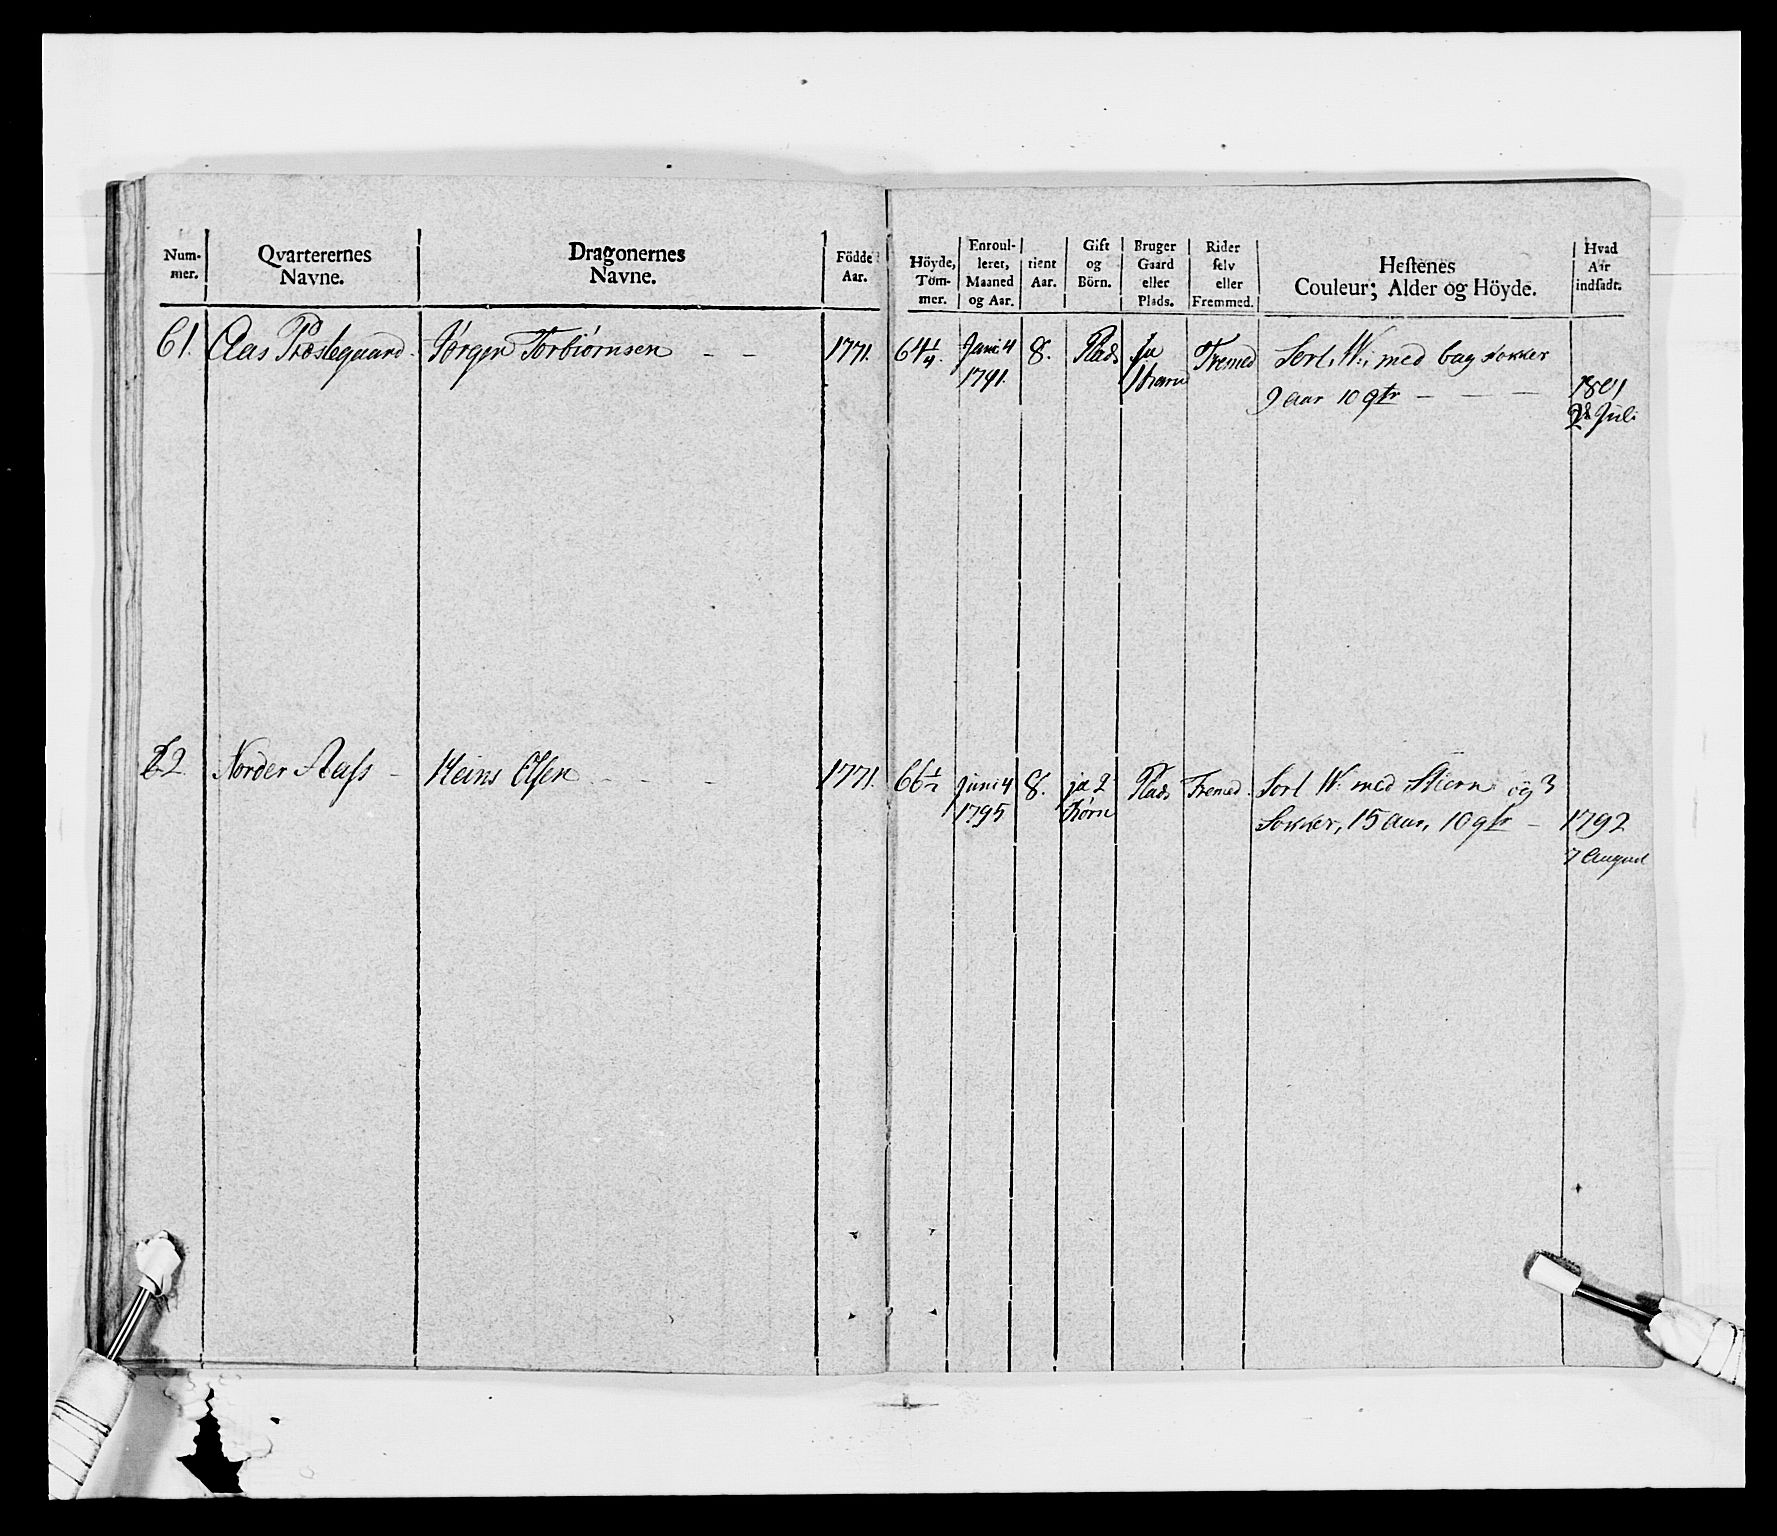 Num-
mer.
Qvarterernes
Navne.
Dragonernes
Navne.
Födde
Aar.
Höyde,
Tom-
mer.
Enroul-
leret,
Maaned
og Aar.
tient
Aar.
Gift
og
Börn.
Bruger
Gaard
eller
Plads.
Rider
selv
eller
Fremmed.
Hestenes
Couleur; Alder og Höyde.
Hvad
Air
indsadt.
61. Aas Præstegaard. Jørgen Torbiørnsen - - 1771. 64 1/4. Juni 4 8. Plads Ja Fremed Sort W: med bag sokker
1791. 1 barn
9 aar 10 qtr - - - 1801
28 Juli
62. Norder Aass - Heins Olsen - - - 1771. 66 1/2 Juni 4 8. ja 2 Plads Fremed. Sort W: med Stiern og 3
1795 Børn Sokker, 15 aar, 10 qtr - 1792
7 August